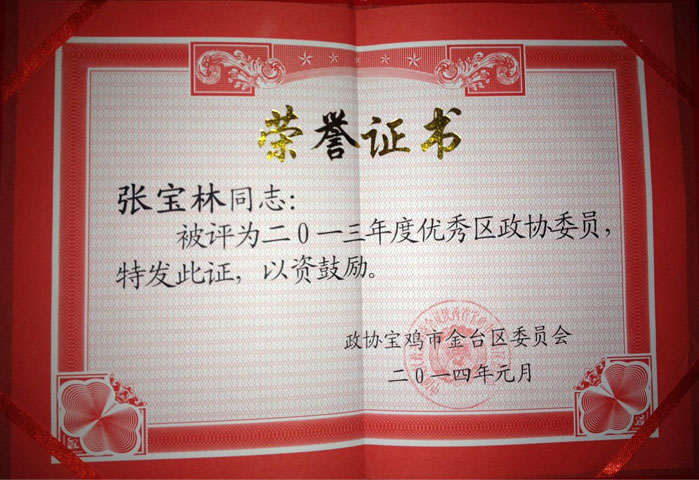 荣誉证书
张宝林同志：
被评为二0一三年度优秀区政协委员，
特发此证，以资鼓励。
政协宝鸡市金台区委员会
二0一四年元月